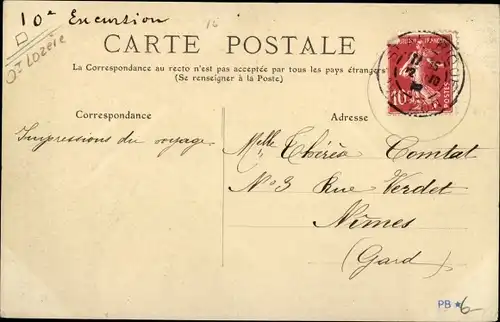 10e Excursion
16
OJ Lozère
CARTE POSTALE
La Correspondance au recto n'est pas acceptée par tous les pays étrangers
(Se renseigner à la Poste)
Correspondance
Adresse
Impressions du voyage
Mlle Thérèse Comtat
No 3 Rue Verdet
Nîmes
(Gard)
10
POSTES
PB 6